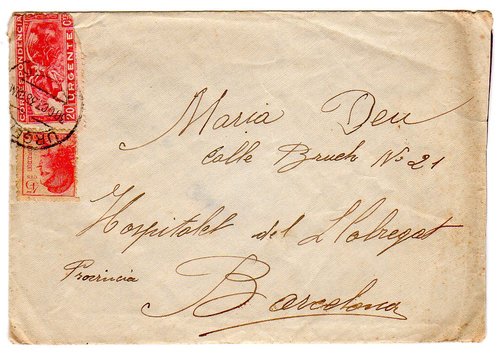 CORRESPONDENCIA
URGENTE
20
45
Maria Deu
Calle Bruch No 21
Hospitalet del Llobregat
Provincia
Barcelona